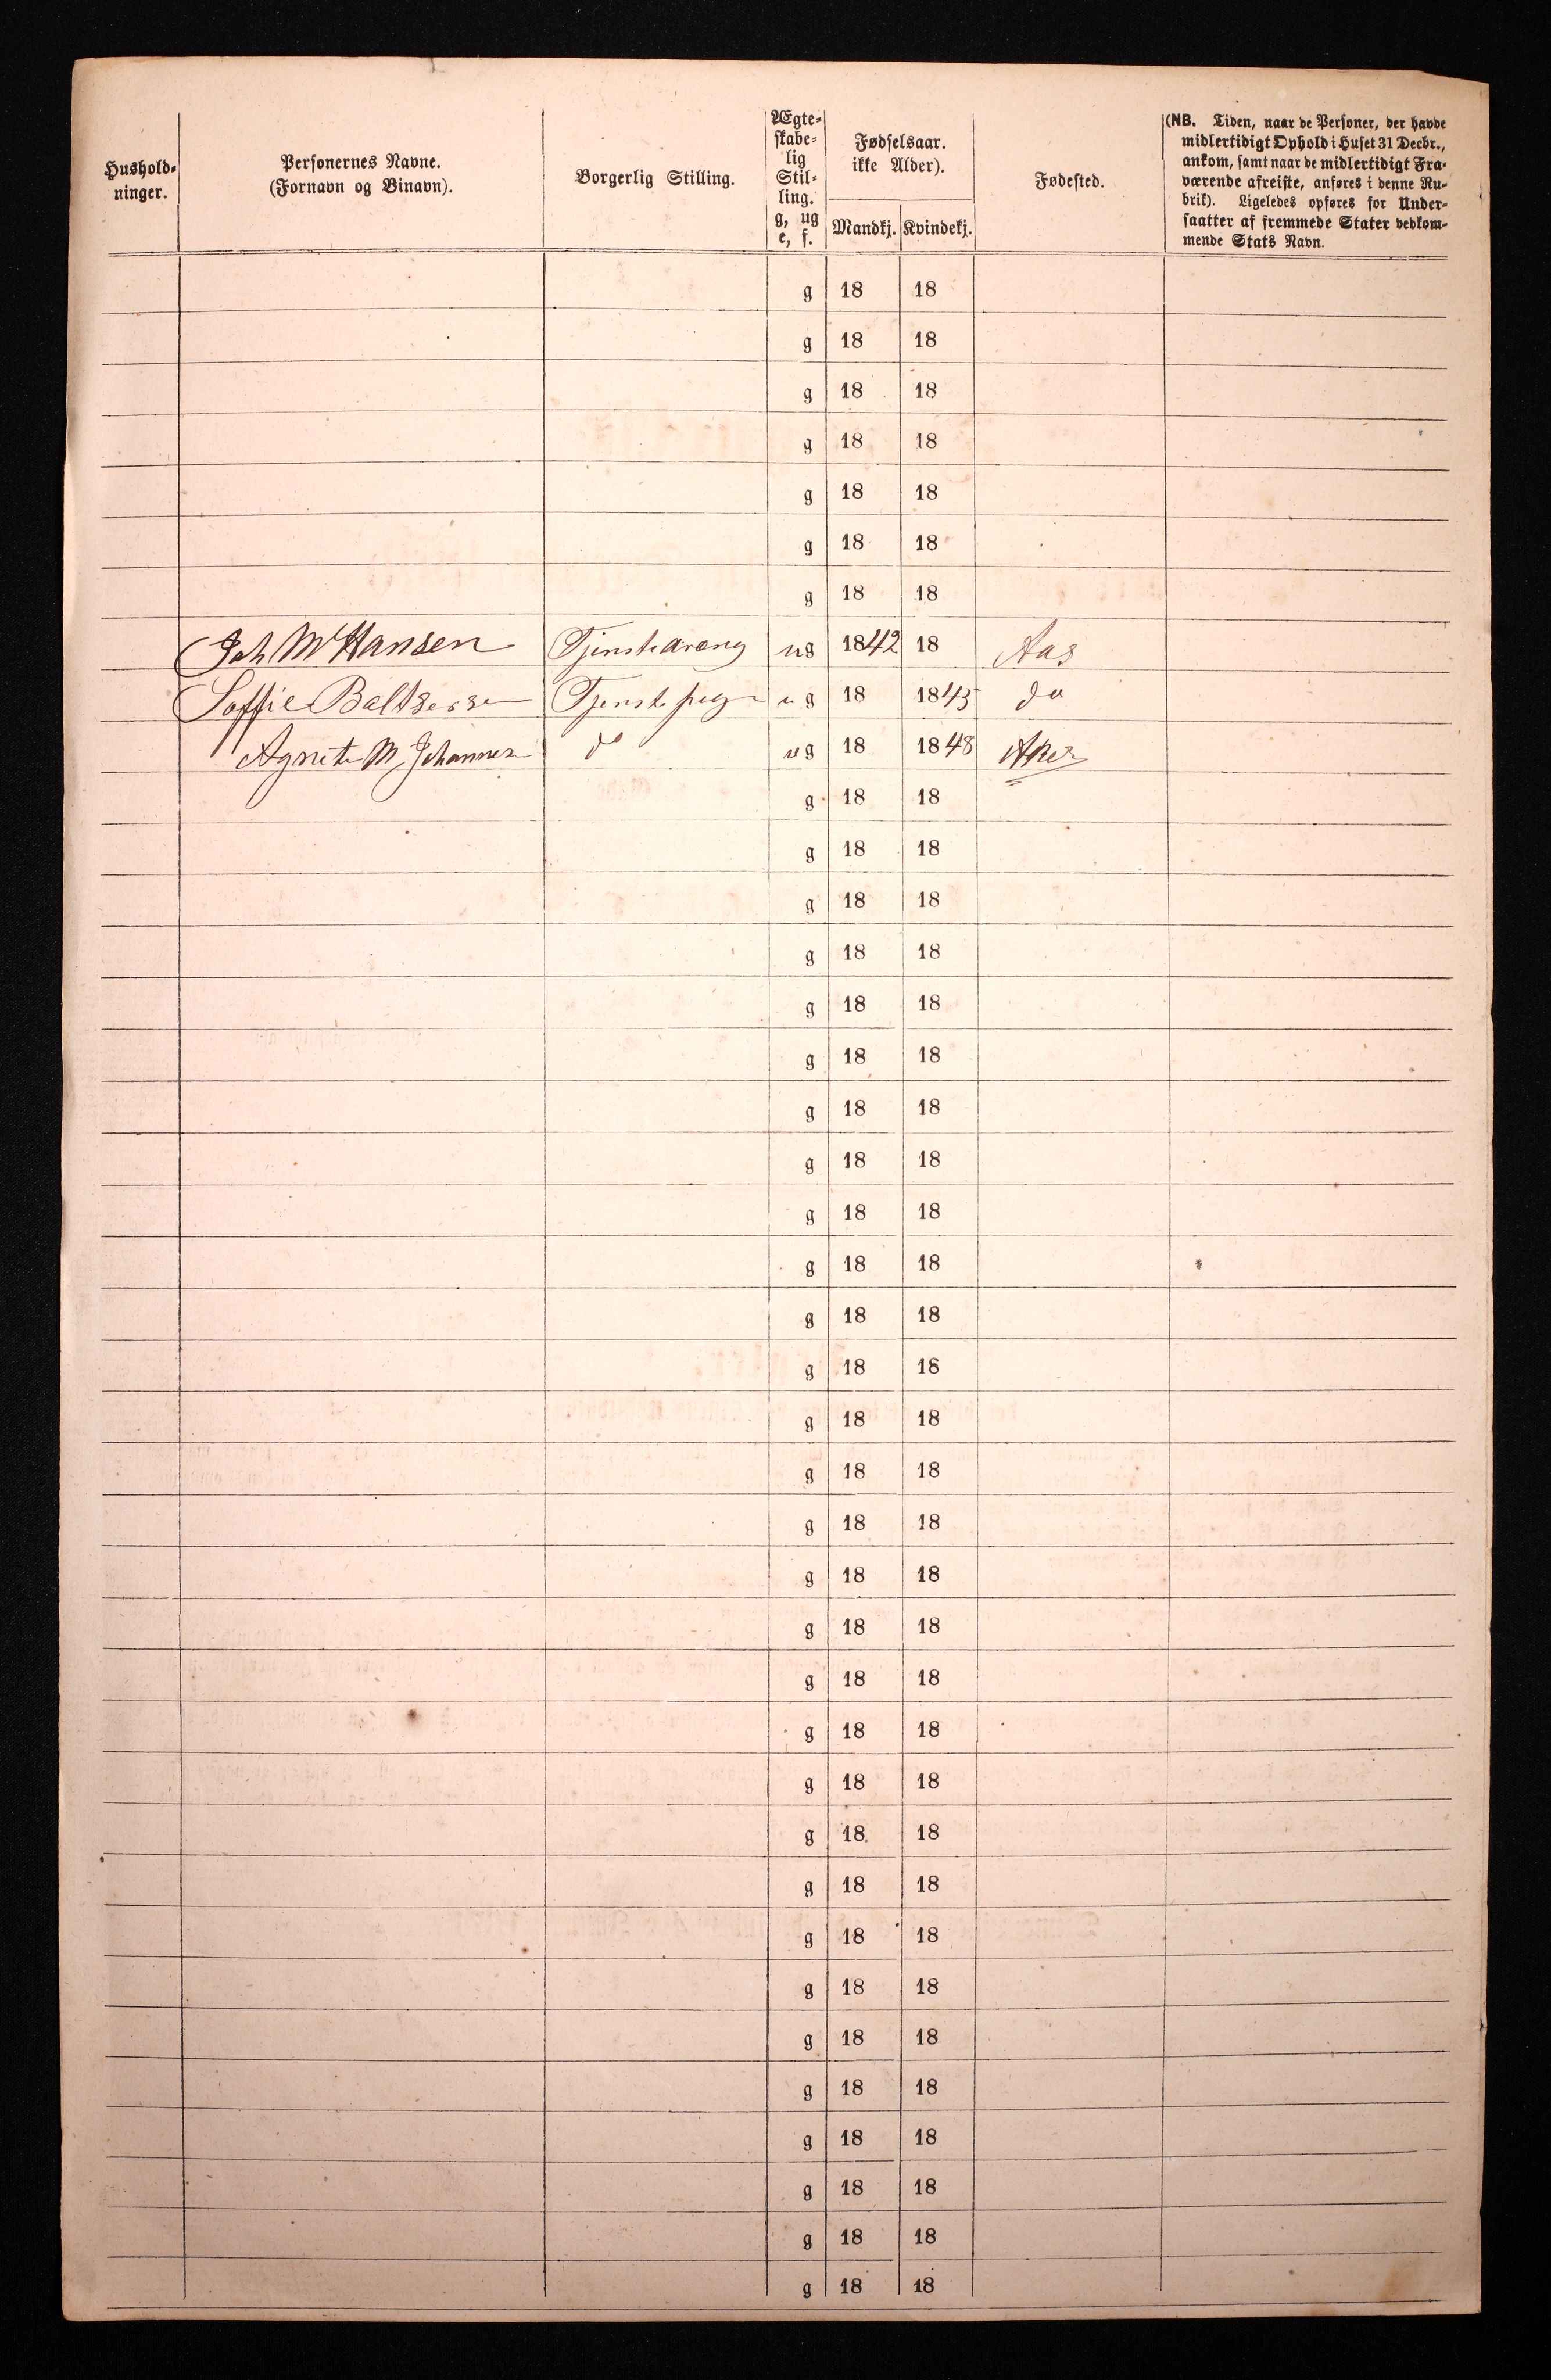 Hushold-
ninger.
Personernes Navne.
(Fornavn og Binavn).
Borgerlig Stilling.
Ægte-
skabe-
lig
Stil-
ling.
g, ug
e, f.
Fødselsaar.
ikke Alder).
Mandkj. Kvindekj.
Fødested.
(NB. Tiden, naar de Personer, der havde
midlertidigt Ophold i Huset 31 Decbr.,
ankom, samt naar de midlertidigt Fra-
værende afreiste, anføres i denne Ru-
brik). Ligeledes opføres for Under-
saatter af fremmede Stater vedkom-
mende Stats Navn.
g 18 18
g 18 18
g 18 18
g 18 18
g 18 18
g 18 18
g 18 18
Joh M Hansen Tjenstedreng ug 1842 18 Aas
Soffie Baltzersen Tjenstepige ug 18 1845 do
Agnete M Johannesen do ug 18 1848 Aker
g 18 18
g 18 18
g 18 18
g 18 18
g 18 18
g 18 18
g 18 18
g 18 18
g 18 18
g 18 18
g 18 18
g 18 18
g 18 18
g 18 18
g 18 18
g 18 18
g 18 18
g 18 18
g 18 18
g 18 18
g 18 18
g 18 18
g 18 18
g 18 18
g 18 18
g 18 18
g 18 18
g 18 18
g 18 18
g 18 18